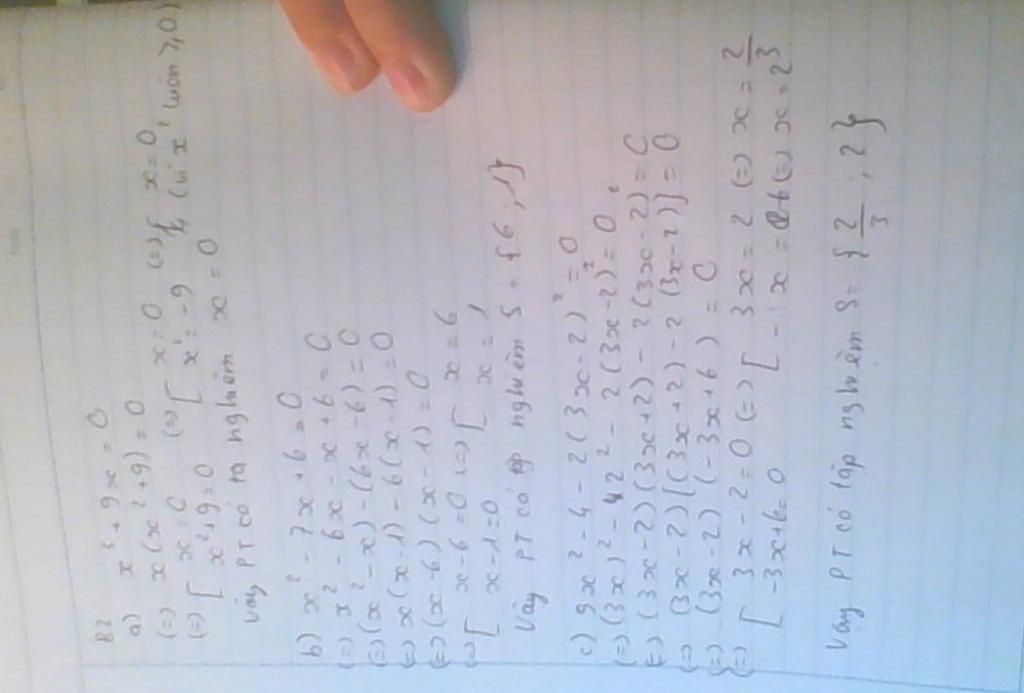 B2
a) x³ + 9x = 0
(=) x(x² + 9) = 0
(=) [ x = 0 (=) [ x = 0 (=) { x = 0
x² + 9 = 0 x² = -9 (vì x² luôn ≥ 0)
Vậy PT có nghiệm x = 0
b) x² - 7x + 6 = 0
(=) x² - 6x - x + 6 = 0
(=) (x² - x) - (6x - 6) = 0
(=) x(x - 1) - 6(x - 1) = 0
(=) (x - 6)(x - 1) = 0
(=) [ x - 6 = 0 (=) [ x = 6
x - 1 = 0 x = 1
Vậy PT có tập nghiệm S = {6 ; 1}
c) 9x² - 4 - 2(3x - 2)² = 0
(=) (3x)² - 2² - 2(3x - 2)² = 0
(=) (3x - 2)(3x + 2) - 2(3x - 2)² = 0
(=) (3x - 2)[(3x + 2) - 2(3x - 2)] = 0
(=) (3x - 2)(-3x + 6) = 0
(=) [ 3x - 2 = 0 (=) [ 3x = 2 (=) x = 2/3
-3x + 6 = 0 - x = -6 (=) x = 2
Vậy PT có tập nghiệm S = {2/3 ; 2}